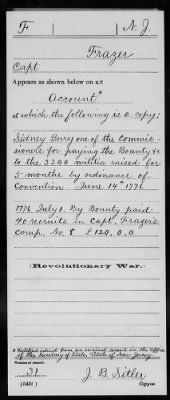 F N. J.
Frazer
Capt
Appears as shown below on a*
Account*
of which the following is a copy:
Sidney Berry one of the Commis-
sioners for paying the Bounty &c
to the 3300 militia raised for
5 months by ordinance of
Convention June 14th 1776
1776 July 1. By Bounty paid
40 recruits in Capt. Frazer's
comp. No. 8 £120.0.0
Revolutionary War.
of the Secretary of State, State of New Jersey
Number of record:
31
J. B. Sitler
(646) Copyist.